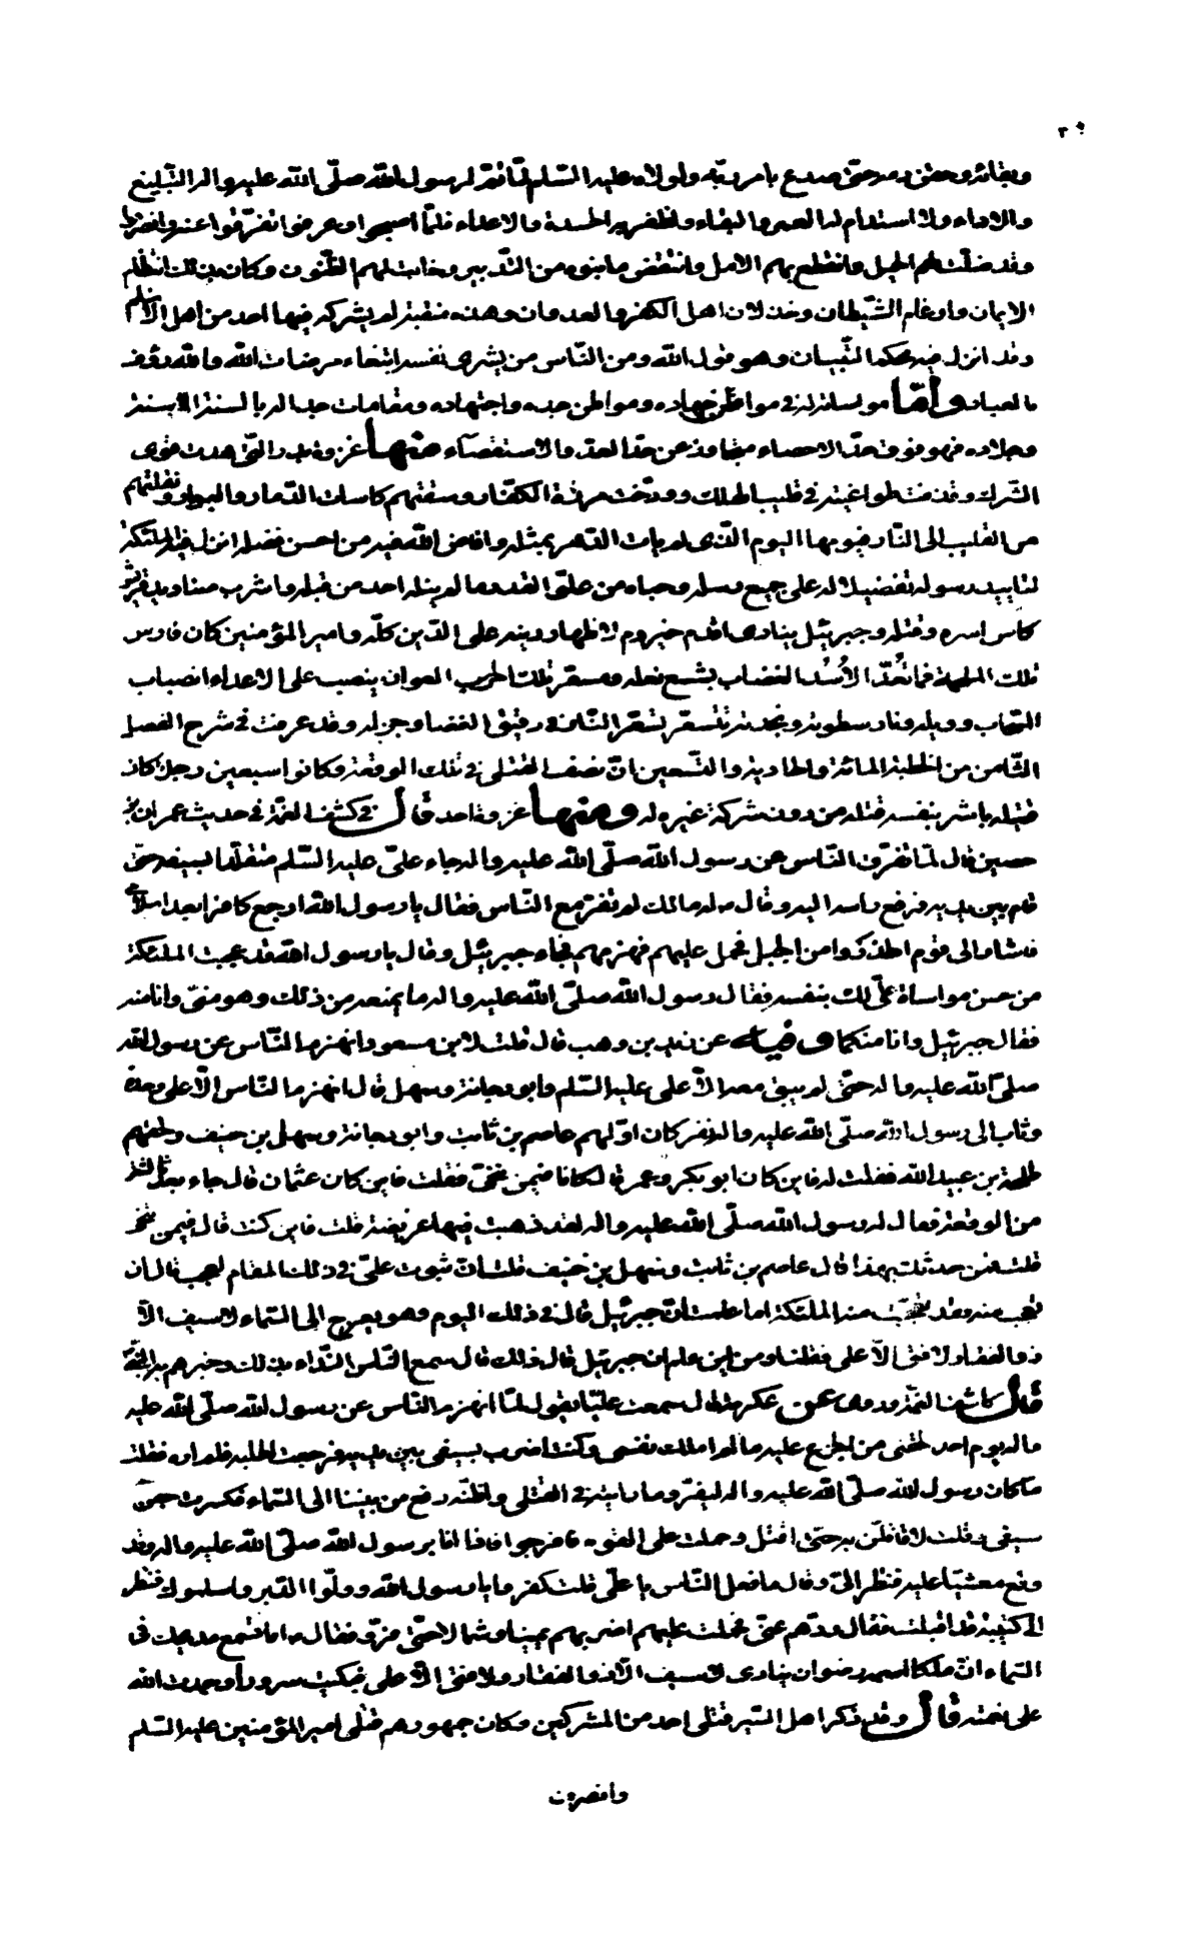 ٢٠
وبقائه وحقن دمه حتى صدع بامر ربه ولولاه عليه السلم لما تم لرسول الله صلى الله عليه واله التبليغ
والاداء ولا استدام له العمر والبقاء ولظفر به الحسدة والاعداء فلما اصبحوا وعرفوا تفرقوا عنه وانصرفوا
وقد ضلت لهم الحيل وانقطع بهم الامل وانتقض ما بنوه من التدبير وخابت لهم الظنون وكان بذلك انتظام
الايمان وارغام الشيطان وخذلان اهل الكفر والعدوان وهذه منقبة لم يشركه فيها احد من اهل الاسلام
وقد انزل فيه محكم التبيان وهو قول الله ومن الناس من يشرى نفسه ابتغاء مرضات الله والله رؤف
بالعباد واما مواساته له في مواطن جهاده ومواطن جده واجتهاده ومقامات جداله بالسنة الاسنة
وجلاده فهو فوق حد الاحصاء متجاوز عن حد العد والاستقصآء منها غزوة بدر التي هدت قوى
الشرك وقذفت طواغيته في قليب الهلك ودوخت مردة الكفار وسقتهم كاسات الدمار والبوار ونقلتهم
من القليب الى النار فيومها اليوم الذى لم يات الدهر بمثله وافاض الله فيه من احسن فضله انزل فيه الملئكة
لتاييد رسوله تفضيلا له على جميع رسله وحباه من علو القدر ما لم ينله احد من قبله واشرب صناديد قريش
كاس اسره وقتله وجبرئيل ينادى اقدم حيزوم لاظهار دينه على الدين كله وامير المؤمنين كان فارس
تلك الملحمة فما تعد الاسد الغضاب بشسع نعله ومسعر تلك الحرب العوان ينصب على الاعداء انصباب
السحاب ووبله ونار سطوته ونجدته تتسعر تسعر النار في دقيق الغضا وجزله وقد عرفت في شرح الفصل
الثامن من الخطبة المائة والحادية والتسعين ان نصف القتلى في تلك الوقعة وكانوا سبعين رجلا كان
قتيله باشر بنفسه قتله من دون شركة غيره له ومنها غزوة احد قال في كشف الغمة في حديث عمران بن
حصين قال لما تفرق الناس عن رسول الله صلى الله عليه واله جاء على عليه السلم متقلدا بسيفه حتى
قام بين يديه فرفع راسه اليه وقال له ما لك لم تفر مع الناس فقال يا رسول الله ارجع كافرا بعد اسلامي
فاشار الى قوم انحدروا من الجبل فحمل عليهم فهزمهم فجاء جبرئيل وقال يا رسول الله قد عجبت الملئكة
من حسن مواساة على لك بنفسه فقال رسول الله صلى الله عليه واله ما يمنعه من ذلك وهو منى وانا منه
فقال جبرئيل وانا منكما وفيه عن زيد بن وهب قال قلت لابن مسعود انهزم الناس عن رسول الله
صلى الله عليه واله حتى لم يبق معه الا على عليه السلم وابو دجانة وسهل قال انهزم الناس الا على وحده
وثاب الى رسول الله صلى الله عليه واله نفر كان اولهم عاصم بن ثابت وابو دجانة وسهل بن حنيف ولحقهم
طلحة بن عبيد الله فقلت له فاين كان ابو بكر وعمر قال كانا فيمن تنحى فقلت فاين كان عثمان قال جاء بعد ثالثة
من الوقعة فقال له رسول الله صلى الله عليه واله لقد ذهبت فيها عريضة قلت فاين كنت قال فيمن تنحى
قلت فمن حدثك بهذا قال عاصم بن ثابت وسهل بن حنيف قلت ان ثبوت على في ذلك المقام لعجب قال ان
تعجب منه وقد تعجبت منه الملئكة اما علمت ان جبرئيل قال في ذلك اليوم وهو يعرج الى السماء لا سيف الا
ذو الفقار ولا فتى الا على فقلنا ومن اين علم ان جبرئيل قال ذلك قال سمع الناس النداء بذلك وخبرهم به النبي
قال كاشف الغمة وروى عن عكرمة قال سمعت عليا يقول لما انهزم الناس عن رسول الله صلى الله عليه
واله يوم احد لحقنى من الجزع عليه ما لم املك نفسى وكنت اضرب بسيفى بين يديه فرجعت اطلبه فلم اره فقلت
ما كان رسول الله صلى الله عليه واله ليفر وما رايته في القتلى واظنه رفع من بيننا الى السماء فكسرت جفن
سيفى وقلت لاقاتلن به حتى اقتل وحملت على القوم فافرجوا فاذا انا برسول الله صلى الله عليه واله وقد
وقع مغشيا عليه فنظر الى وقال ما فعل الناس يا على قلت كفروا يا رسول الله وولوا الدبر واسلموك فنظر
الى كتيبة قد اقبلت فقال ردهم عنى فحملت عليهم اضربهم يمينا وشمالا حتى فروا فقال اما تسمع مديحك في
السماء ان ملكا اسمه رضوان ينادى لا سيف الا ذو الفقار ولا فتى الا على فبكيت سرورا وحمدت الله
على نعمته قال وقد ذكر اهل السير قتلى احد من المشركين وكان جمهورهم قتلى امير المؤمنين عليه السلم
وانصرف